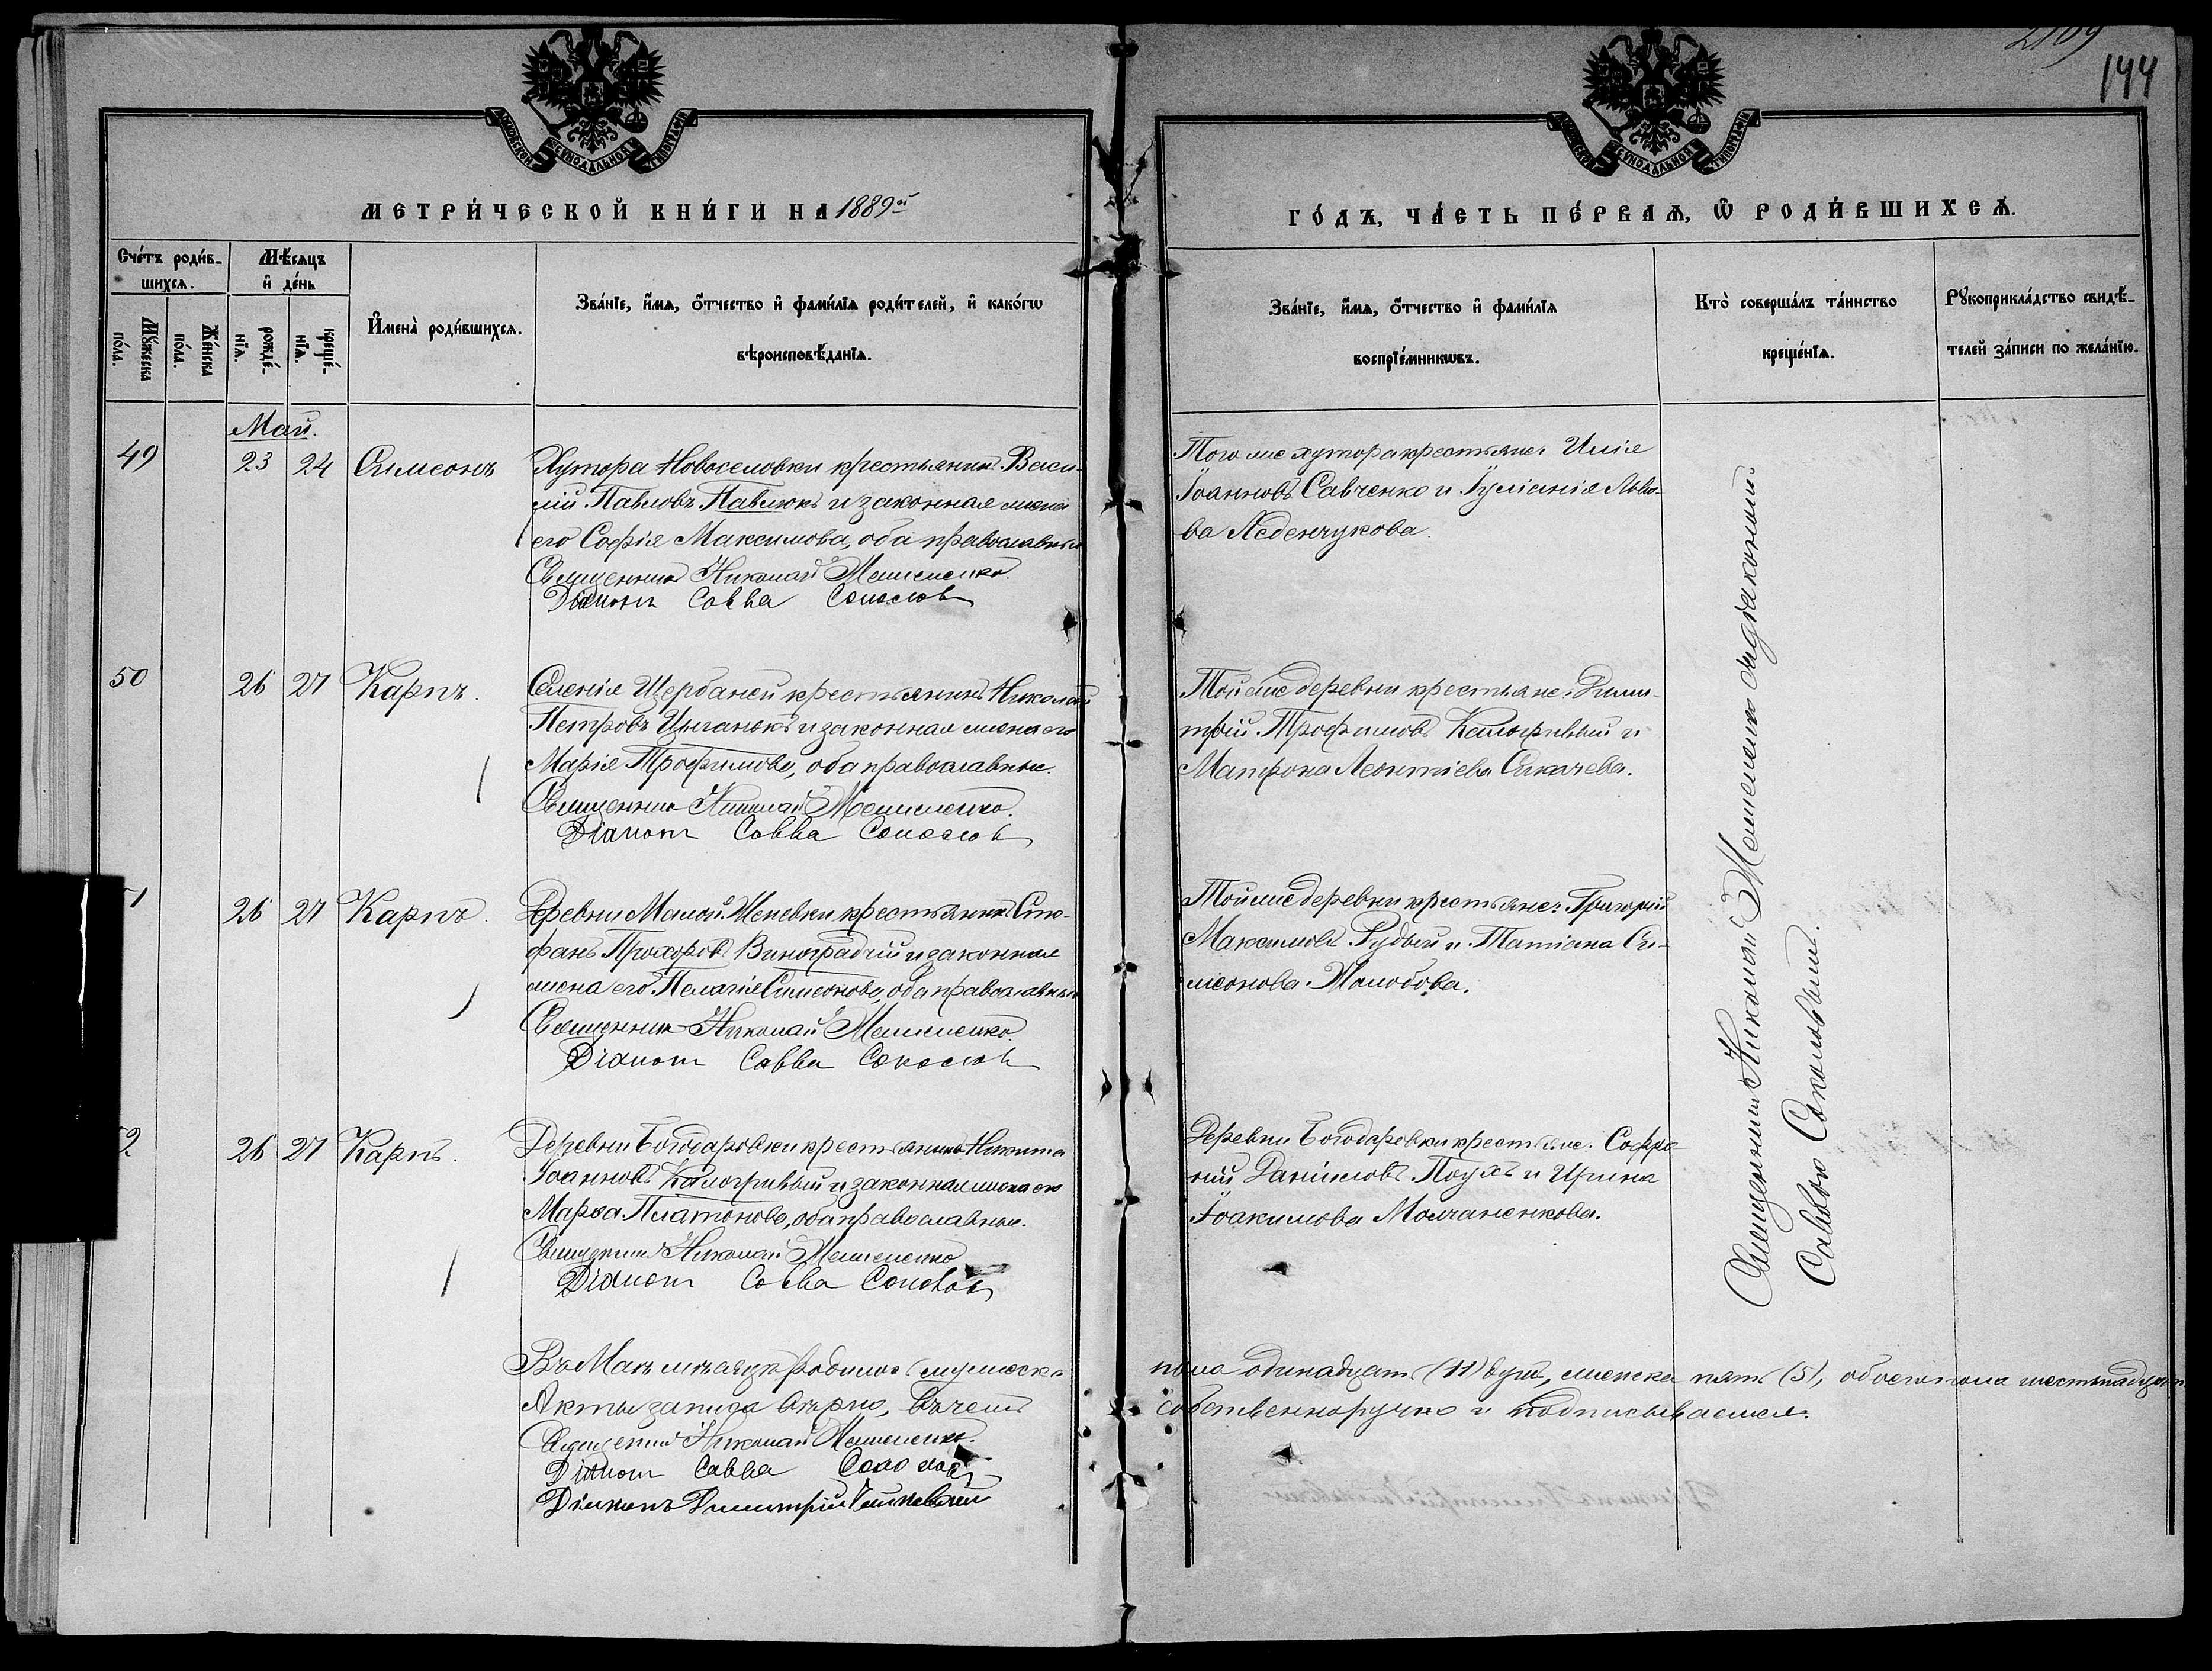 144
МЕТРИ́ЧЕСКОЙ КНИ́ГИ НА 1889ой
ГО́ДЪ, ЧА́СТЬ ПЕ́РВАѦ, Ѽ РОДИ́ВШИХСѦ.
Сче́тъ роди́в-
шихсѧ.
Мꙋ́жеска по́ла.
Же́нска по́ла.
Мѣ́сѧцъ
и҆ де́нь
рожде́-
нїѧ.
креще́-
нїѧ.
И҆мена̀ роди́вшихсѧ.
Зва́нїе, и҆́мѧ, ѻ҆́тчество и҆ фами́лїѧ роди́телей, и҆ како́гѡ
вѣроисповѣ́данїѧ.
Зва́нїе, и҆́мѧ, ѻ҆́тчество и҆ фами́лїѧ
воспрїе́мникѡвъ.
Кто̀ соверша́лъ та́инство
креще́нїѧ.
Рꙋкоприкла́дство свидѣ́-
телей за́писи по жела́нїю.
Май.
49 23 24 Симеонъ
Хутора Новоселовки крестьянинъ Васи-
лій Павловъ Павлюкъ и законная жена
его Софія Максимова, оба православные
Священникъ Николай
Діаконъ Савва Соколов
Того же хутора крестьяне: Илія
Іоанновъ Савченко и Іуліанія Льво-
ва Леденчукова.
50 26 27 Карпъ.
Селенія Щербаней крестьянинъ Николай
Петровъ Цыганокъ и законная жена его
Марія Трофимова, оба православные.
Священникъ Николай
Діаконъ Савва Соколов
Той же деревни крестьяне: Дими-
трій Трофимовъ Калогривый и
Матрона Леонтіева Сикачева.
26 27 Карпъ.
Деревни Малой Женевки крестьянинъ Сте-
фанъ Прохоровъ Виноградчій и законная
жена его Пелагія Симеонова, оба православные
Священникъ Николай
Діаконъ Савва Соколов
Той же деревни крестьяне: Григорій
Максимовъ Рудый и Татіана Си-
меонова
26 27 Карпъ.
Деревни Богодаровки крестьянинъ Никита
Іоанновъ Калогривый и законная жена его
Марѳа Платонова, оба православные.
Священникъ Николай
Діаконъ Савва Соколов
Деревни Богодаровки крестьяне: Софро-
ній Даніиловъ Поухъ и Ирина
Іоакимова Молчаненкова.
Священникъ Николай съ діакономъ
Саввою Соколовымъ.
Въ Маѣ мѣсяцѣ родилось мужеска пола одинадцать (11) душъ, женска пять (5), обоего пола шестьнадцать
Акты записа вѣрно, въ чемъ собственноручно и подписываемся:
Священникъ Николай
Діаконъ Савва Соколов
Діаконъ Димитрій